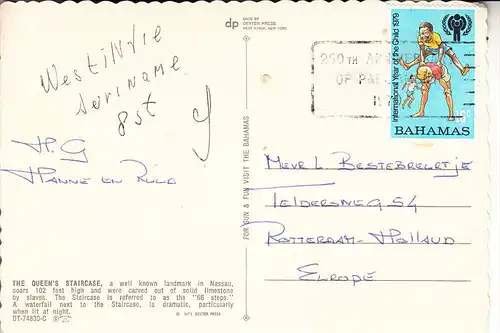 dp
MADE BY
DEXTER PRESS
WEST NYACK, NEW YORK
WestIndie
Suriname
8st
H.G
Hanne en Ruud
THE QUEEN'S STAIRCASE, a well known landmark in Nassau,
soars 102 feet high and were carved out of solid limestone
by slaves. The Staircase is referred to as the "66 steps."
A waterfall next to the Staircase, is dramatic, particularly
when lit at night.
DT-74830-C
© 1971 DEXTER PRESS
FOR SUN & FUN VISIT THE BAHAMAS
250TH
OF
International Year of the Child 1979
15c
BAHAMAS
Mevr L Bestebreurtje
Teldersweg 54
Rotterdam-Holland
Europe